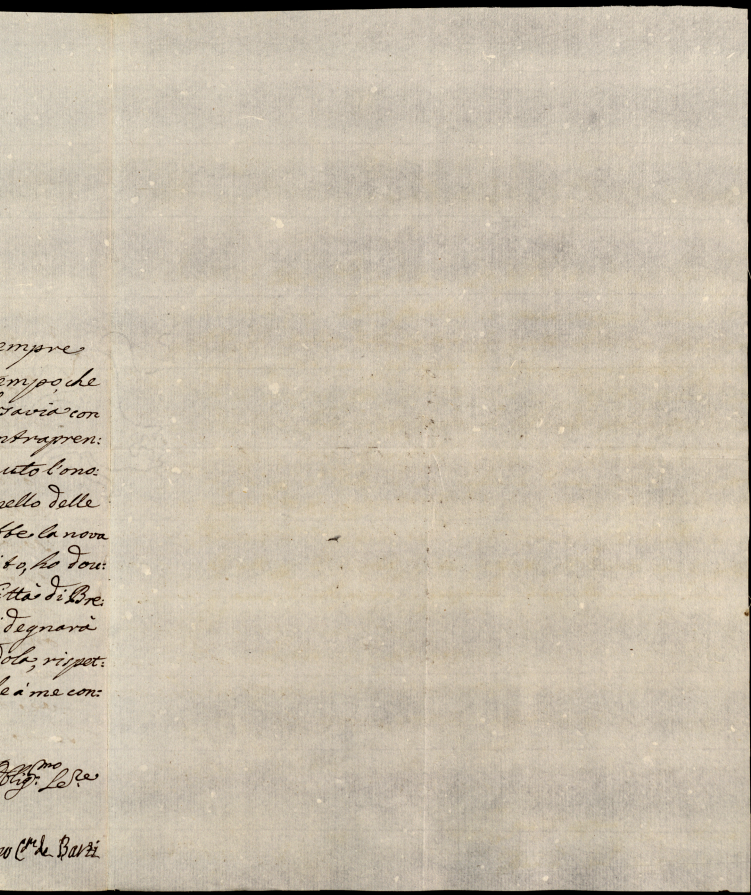 empre
empo, che
savia con
ntrapren:
uto l'ono:
nello delle
bbe la nova
ito, ho dou:
Città di Bre:
degnarà
dola, rispet:
le à me con:
Oblig.mo Se.re
no C.te de Barzi